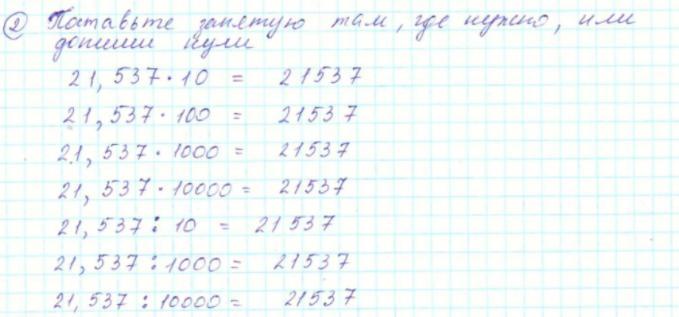 ② Поставьте запятую там, где нужно, или
допиши нули
21,537 · 10 = 21537
21,537 · 100 = 21537
21,537 · 1000 = 21537
21,537 · 10000 = 21537
21,537 : 10 = 21537
21,537 : 1000 = 21537
21,537 : 10000 = 21537